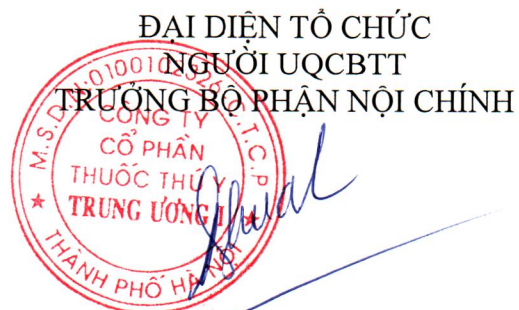 ĐẠI DIỆN TỔ CHỨC
NGƯỜI UQCBTT
TRƯỞNG BỘ PHẬN NỘI CHÍNH
CÔNG TY
CỔ PHẦN
THUỐC THÚ Y
TRUNG ƯƠNG I
THÀNH PHỐ HÀ NỘI